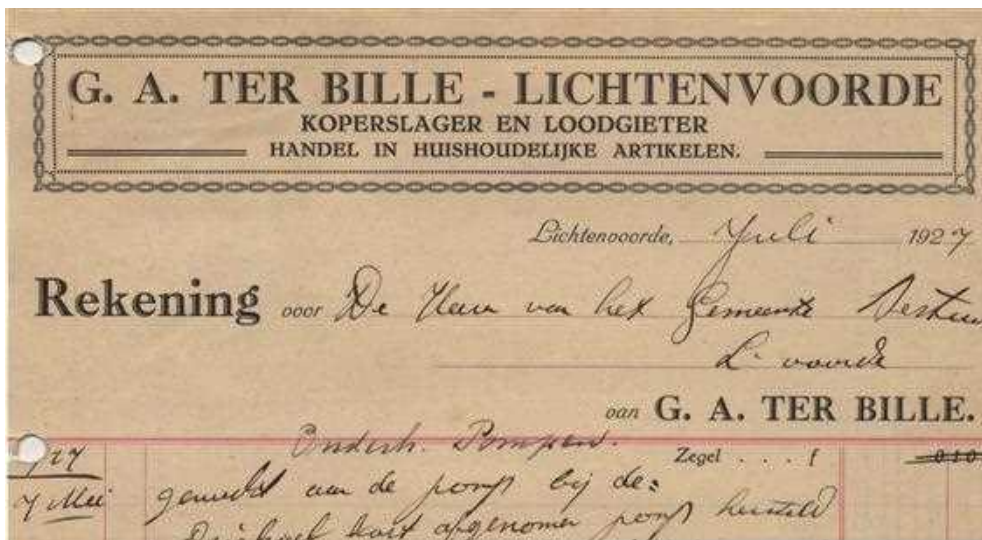 G. A. TER BILLE - LICHTENVOORDE
KOPERSLAGER EN LOODGIETER
HANDEL IN HUISHOUDELIJKE ARTIKELEN.
Lichtenvoorde, Juli 1927
Rekening voor De Heeren van het Gemeente Bestuur
L. voorde
aan G. A. TER BILLE.
Onderh. Pompen.
Zegel . . . f 010
1927
7 Mei gewerkt aan de pomp bij de:
afgenomen pomp hersteld